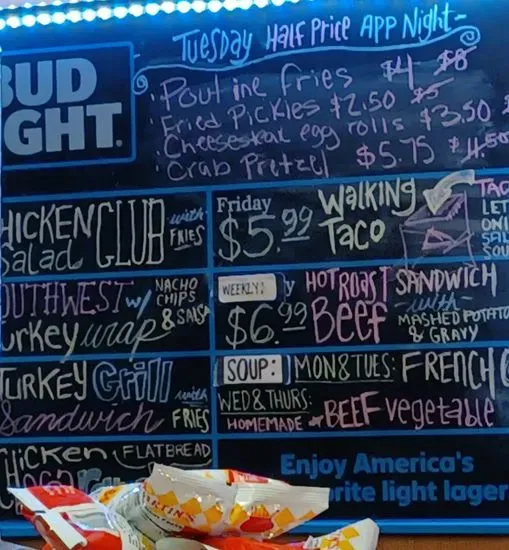 Tuesday Half Price App Night-
BUD
GHT.
Poutine fries $4 $8
Fried Pickles $2.50 $5
Cheesesteak egg rolls $3.50
Crab Pretzel $5.75 $11.50
HICKEN
Salad CLUB with FRIES
OUTHWEST w/ NACHO CHIPS & SALSA
urkey wrap
TURKEY Grill with
Sandwich FRIES
CHicKen FLATBREAD
Friday
$5.99 WALKING
TACO
TAC
LET
ONI
SAL
SOU
WEEKLY: y HOT ROAST SANDWICH
$6.99 BEEF with
MASHED POTATO
& GRAVY
SOUP: MON&TUES: FRENCH
WED & THURS:
HOMEMADE BEEF vegetable
Enjoy America's
rite light lager